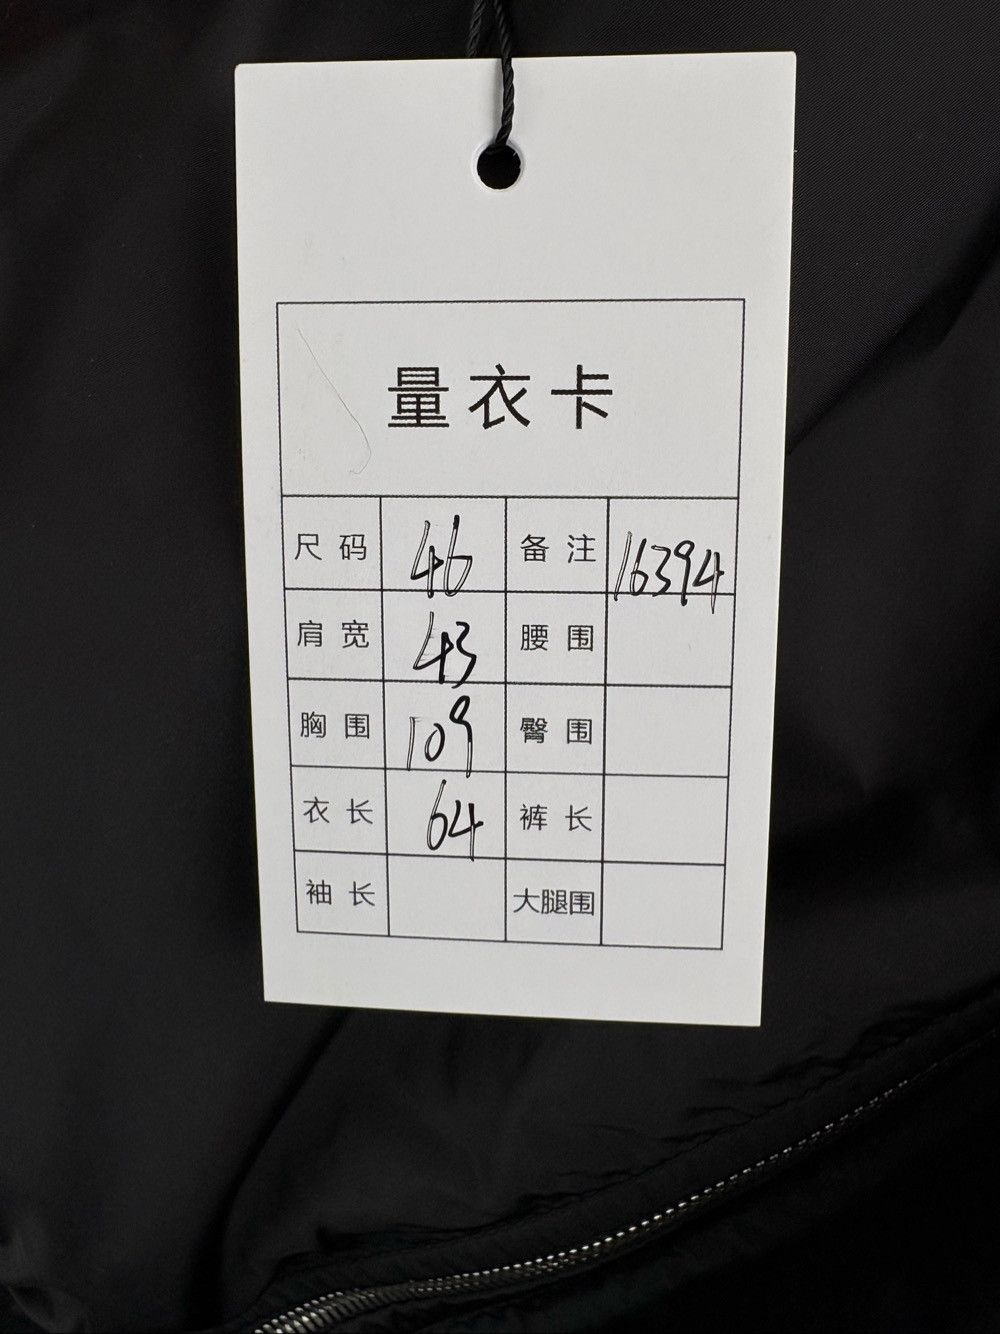 量衣卡
尺码 46 备注 16394
肩宽 43 腰围
胸围 109 臀围
衣长 64 裤长
袖长 大腿围